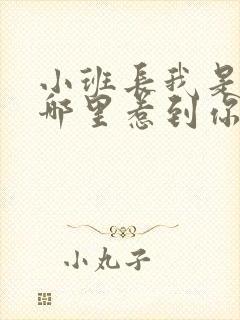 小班長我是
哪里惹到你
小丸子